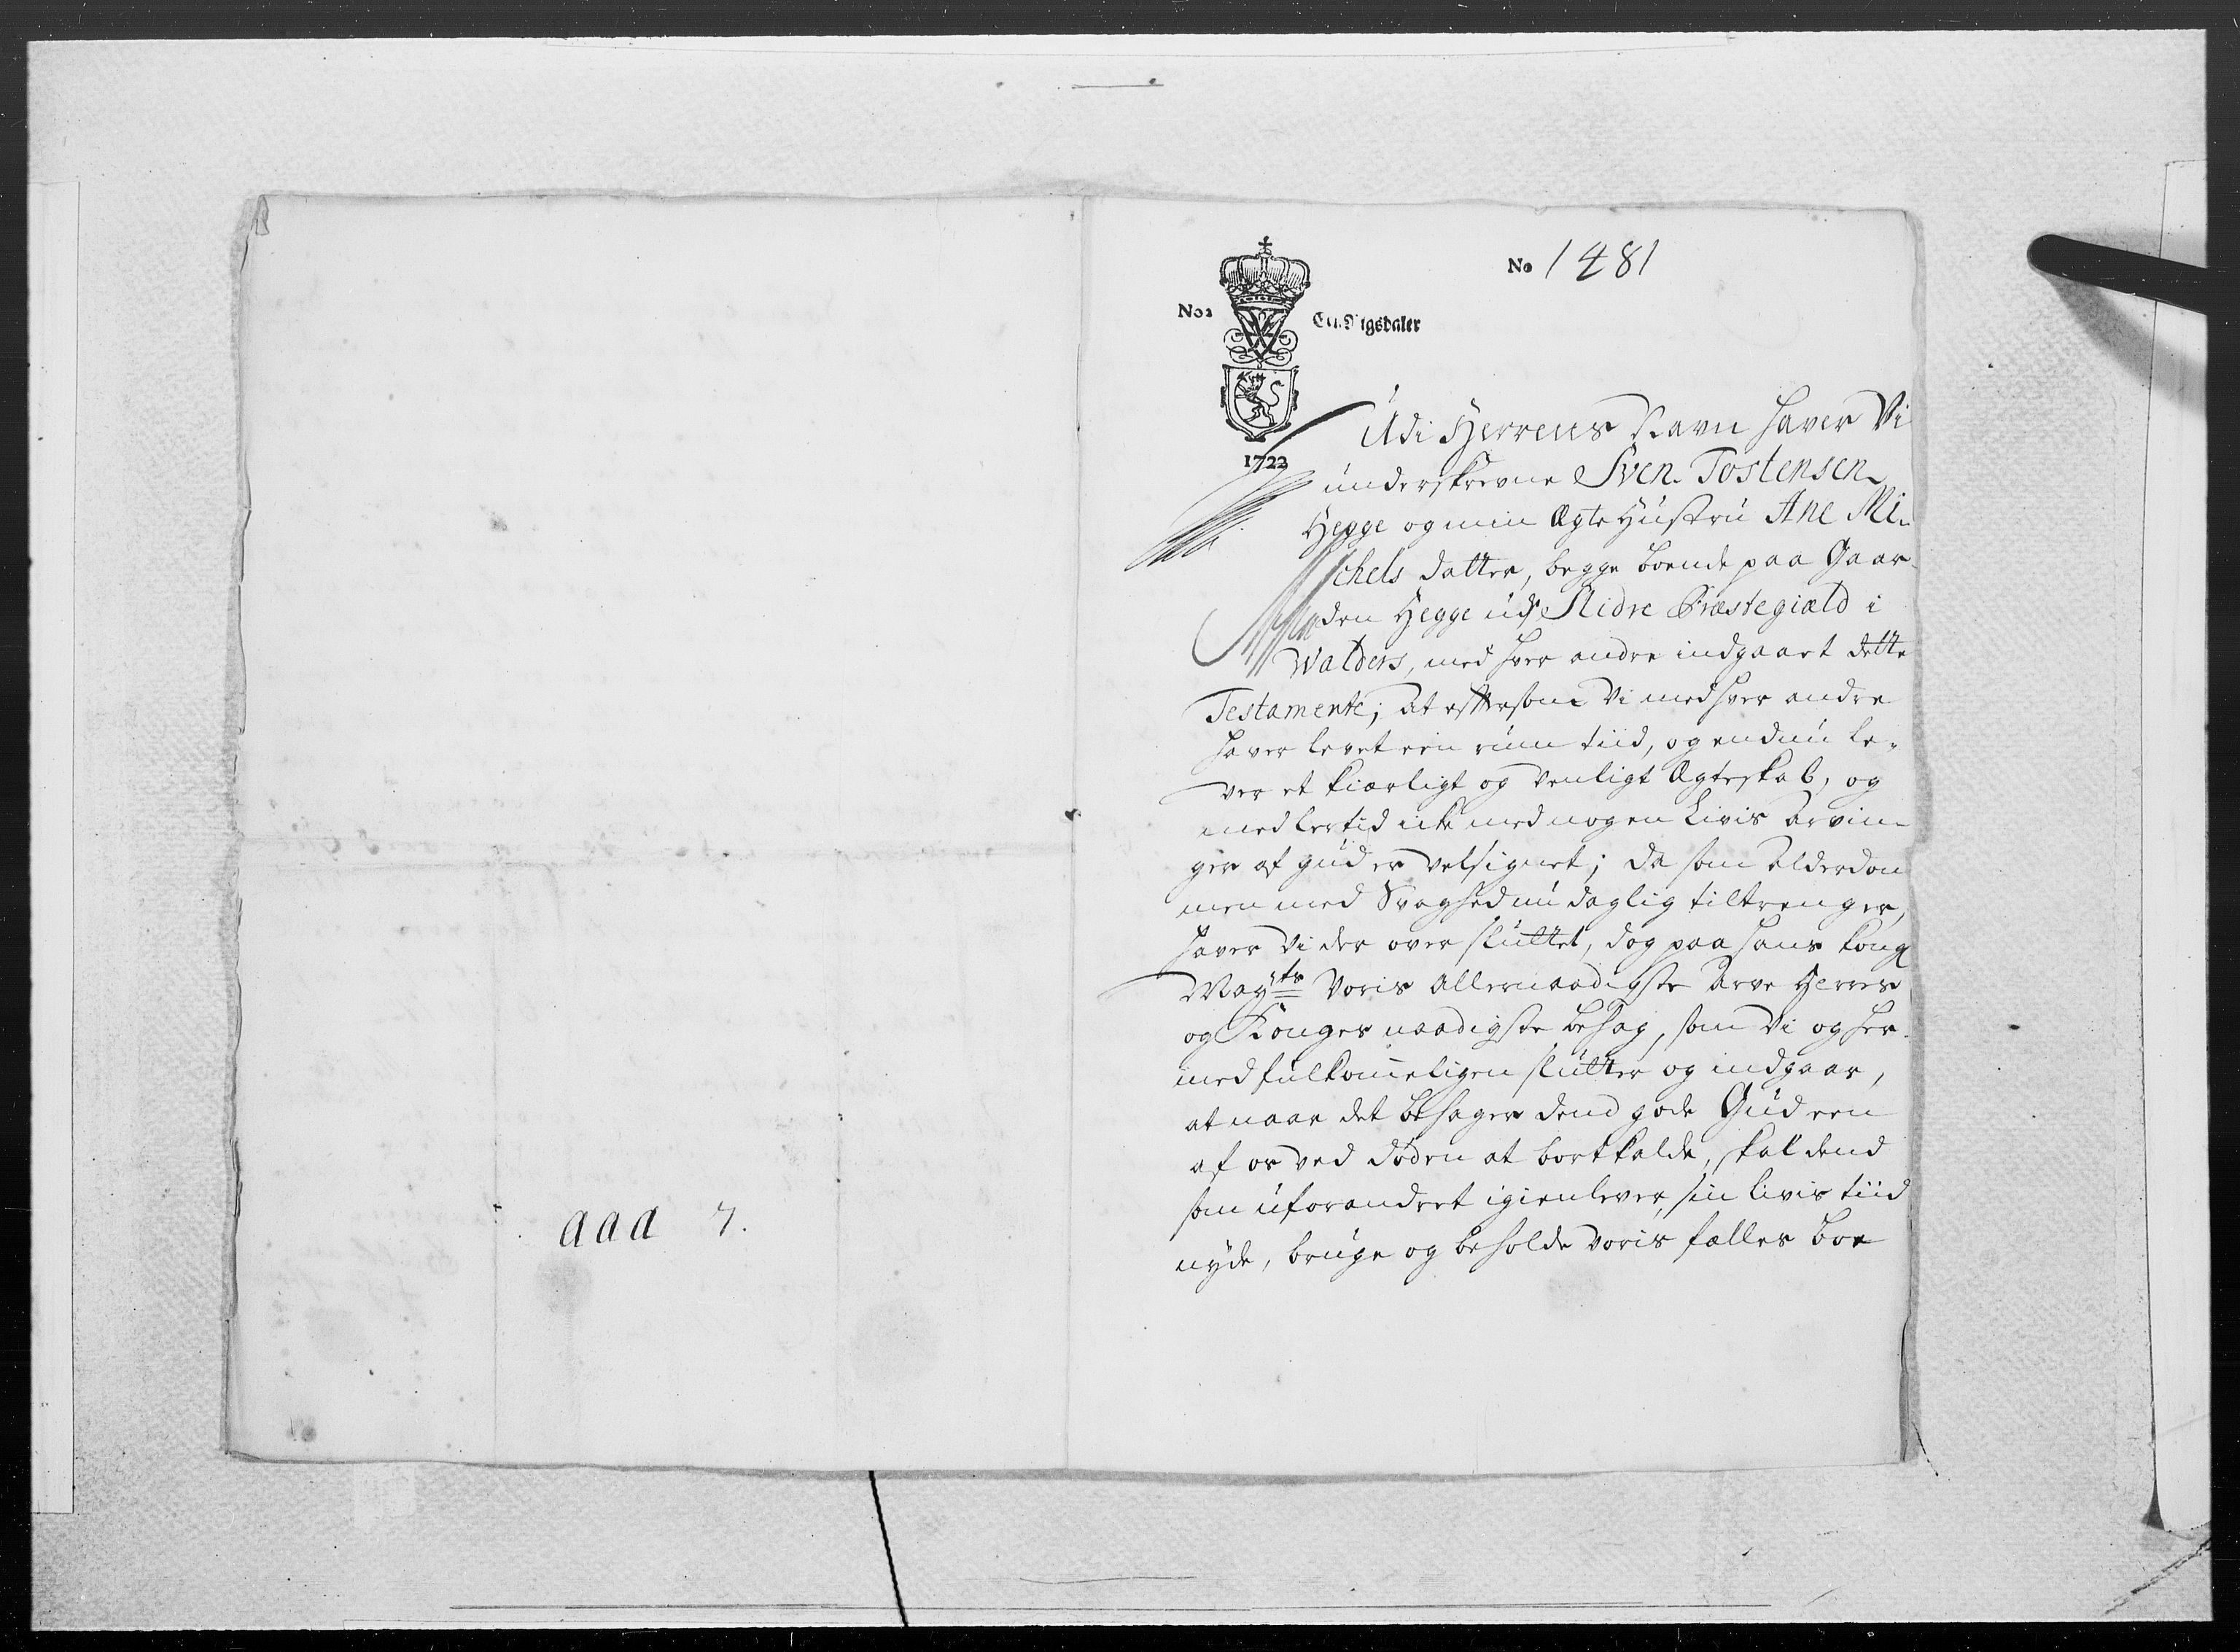 No 1481
No 2 Een Rigsdaler
1722
Udi Herrens Navn haver Vi
underskrevne Sven Tostensen
Hegge og min Ægte Hustru Ane Mi-
chels datter, begge boende paa Gaar-
den Hegge udj Slidre Præstegiæld i
Walders, med hver andre indgaaet dette
Testamente; At eftersom Vi med hver andre
haver levet een rum tiid, og endnu le-
ver et kiærligt og venligt Ægteskab, og
medlertid icke med nogen Livis Arvin-
ger af Gud er velsignet; da som Alderdom
men med Svaghed nu daglig tiltrenger,
haver Vi der over sluttet, dog paa Hans Kongl
Mayts Voris Allernaadigste Arve Herres
og Konges naadigste behag, som Vi og her-
med fulkommeligen slutter og indgaar,
at naar det behager dend gode Gud een
af os ved døden at bortkalde, skal dend
som uforandret igienlever, sin livis tiid
nyde, bruge og beholde voris fælles boe
aaa 7.